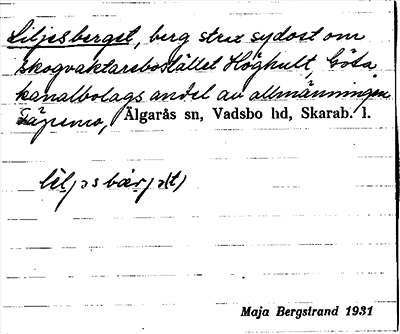 Liljesberget, berg strax sydost om
skogvaktarebostället Höghult, Göta
kanalbolags andel av allmänningen
Älgarås sn, Vadsbo hd, Skarab. l.
Maja Bergstrand 1931